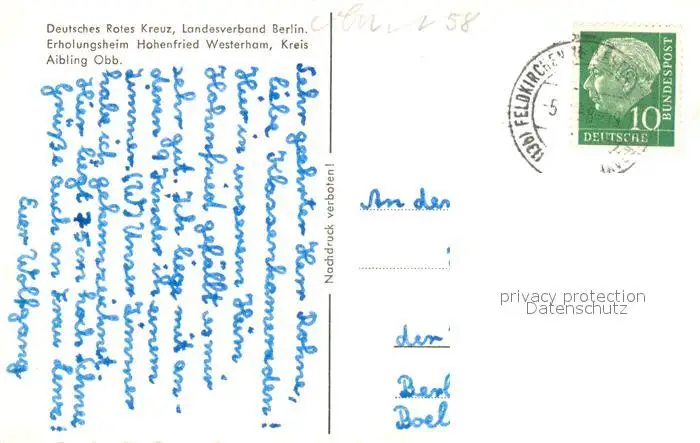 Deutsches Rotes Kreuz, Landesverband Berlin.
Erholungsheim Hohenfried Westerham, Kreis
Aibling Obb.
58
Sehr geehrter Herr Rohne,
liebe Klassenkameraden!
Hier in unserem Heim
Hohenfried gefällt es mir
sehr gut. Ich liege mit an-
deren 9 Kinder in einem
Zimmer. (W) Unser Zimmer
habe ich gekennzeichnet.
Hier liegt 75 m hoch Schnee
Grüße auch an Frau
Euer Wolfgang
Nachdruck verboten!
(13b) FELDKIRCHEN
5
10
DEUTSCHE
BUNDESPOST
An den
der
Berl
Boel
privacy protection
Datenschutz